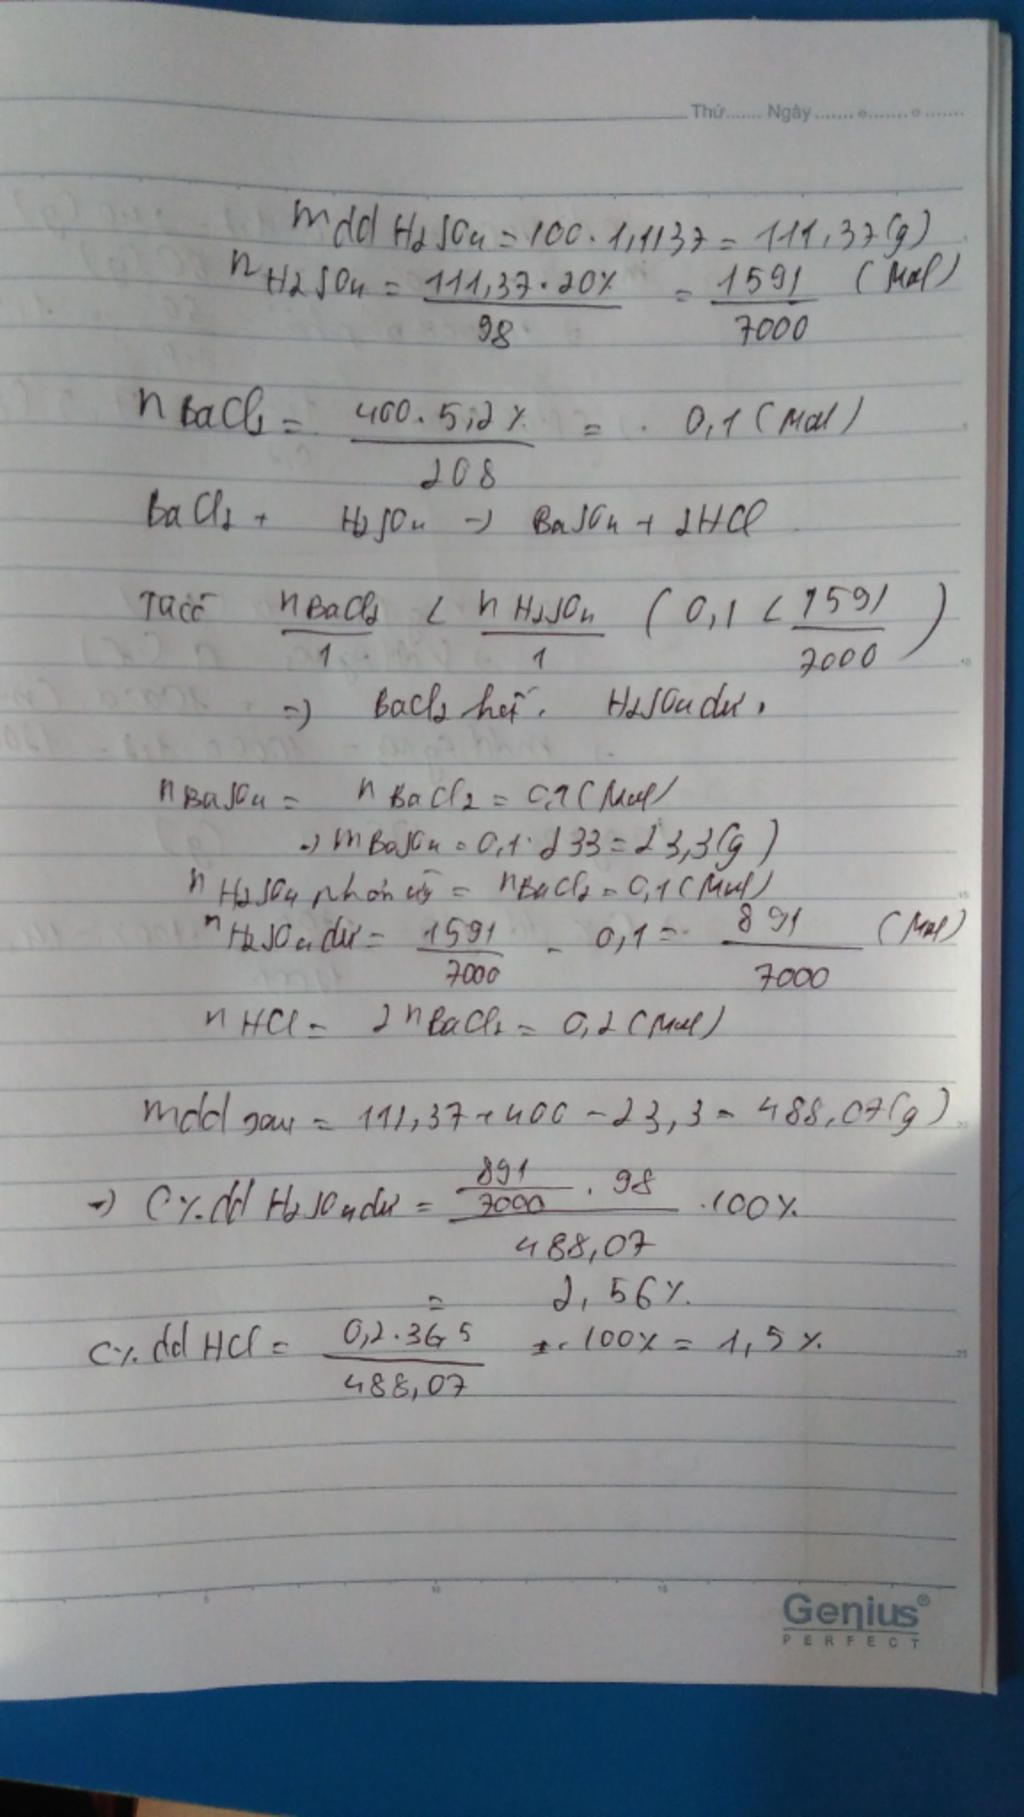 Thứ....... Ngày.......o.......o.......
mdd H2SO4 = 100 . 1,1137 = 111,37 (g)
nH2SO4 = 111,37 . 20% / 98 = 1591 / 7000 (mol)
nBaCl2 = 400 . 5,2% / 208 = 0,1 (mol)
BaCl2 + H2SO4 → BaSO4 + 2HCl
Ta có nBaCl2 / 1 < nH2SO4 / 1 (0,1 < 1591 / 7000)
=> BaCl2 hết. H2SO4 dư.
nBaSO4 = nBaCl2 = 0,1 (mol)
=> mBaSO4 = 0,1 . 233 = 23,3 (g)
nH2SO4 phản ứng = nBaCl2 = 0,1 (mol)
nH2SO4 dư = 1591 / 7000 - 0,1 = 891 / 7000 (mol)
nHCl = 2nBaCl2 = 0,2 (mol)
mdd sau = 111,37 + 400 - 23,3 = 488,07 (g)
=> C% dd H2SO4 dư = 891 / 7000 . 98 / 488,07 . 100%
= 2,56%.
C% dd HCl = 0,2 . 36,5 / 488,07 . 100% = 1,5%.
5 10 15
Genius®
PERFECT